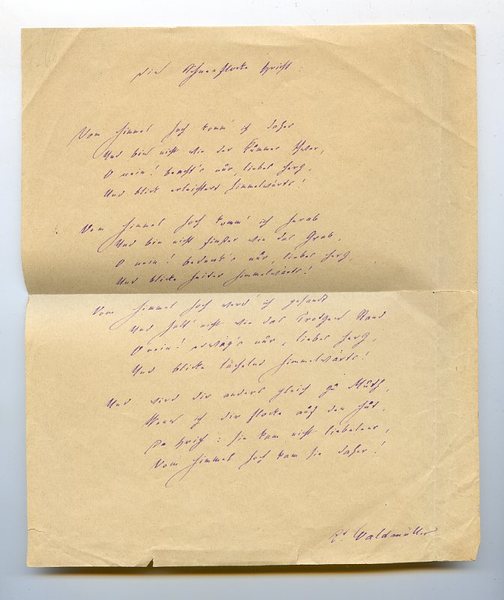 Die Schneeflocke spricht
Vom Himmel hoch komm' ich daher
Und bin nicht wie der Kummer schwer,
O nein! bedenk's nur, liebes Herz,
Und blick erleichtert himmelwärts!
Vom Himmel hoch komm' ich herab
Und bin nicht finster wie das Grab,
O nein! bedenk's nur, liebes Herz,
Und blicke heiter himmelwärts!
Vom Himmel hoch werd' ich gesandt
Und nicht wie das
O nein! erwäg's nur, liebes Herz,
Und blicke lächelnd himmelwärts!
Und wird dir anders gleich zu Muth,
Wenn ich dir Flocke auf den Hut,
So sprich: sie kam nicht liebeleer,
Vom Himmel hoch kam sie daher!
Waldmüller